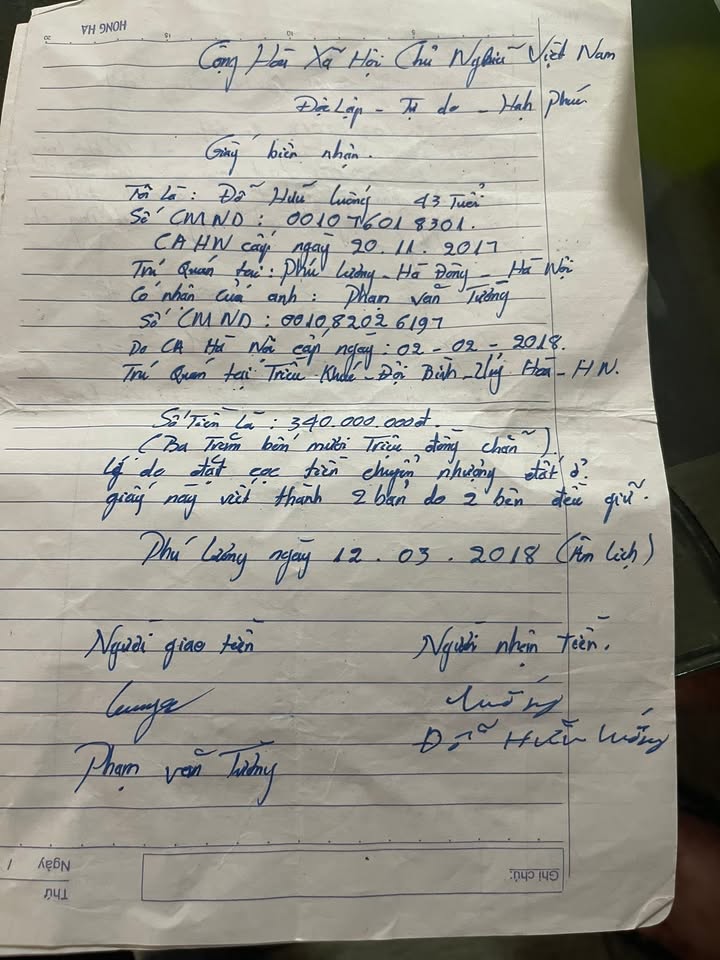 HONG HA
20 15 10 5
Cộng Hoà Xã Hội Chủ Nghĩa Việt Nam
Độc Lập - Tự do - Hạh Phúc
Giấy biên nhận.
Tôi Là : Đỗ Hữu Lương 43 Tuổi
Số CMND : 001076018301.
CAHN cấp ngày 20.11.2017
Trú Quán tại : Phú Lương - Hà Đông - Hà Nội
Có nhân của anh : Phạm văn Tưởng
Số CMND : 001082026197
Do CA Hà Nội cấp ngày : 02 - 02 - 2018.
Trú Quán tại Triều Khúc - Đội Bình - Ứng Hoà - HN.
Số Tiền Là : 340.000.000đ.
(Ba Trăm bốn mươi Triệu đồng chẵn)
Lý do đặt cọc tiền chuyển nhượng đất ở.
giấy này viết thành 2 bản do 2 bên đều giữ.
Phú Lương ngày 12 . 03 . 2018 (Âm Lịch)
Người giao tiền Người nhận tiền.
Lương
Phạm văn Tưởng Đỗ Hữu Lương
Ghi chú:
Ngày /
Thứ